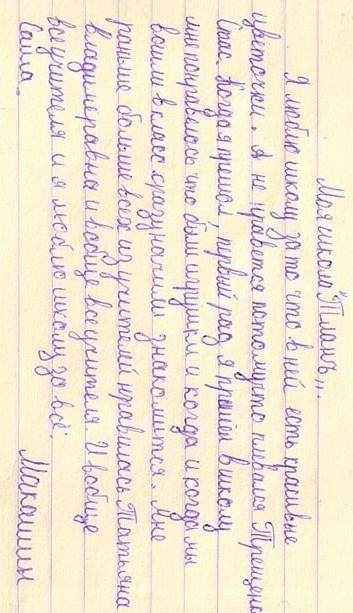 Моя школа "Планъ,,.
Я люблю школу за то что в ней есть красивые
цветочки. А не нравется потомушто
Спас. Когдая прешол, первый раз я пришёл в школу
мне понравилось что были игрушки и когда и когда мы
вошли в класс сразу начили знакомится. Мне
раньше больше всех из учителей нравилась Татьяна
владимеравна и вобще все учителя И вобще
все учителя и я люблю школу за всё.
Саша. Макошин